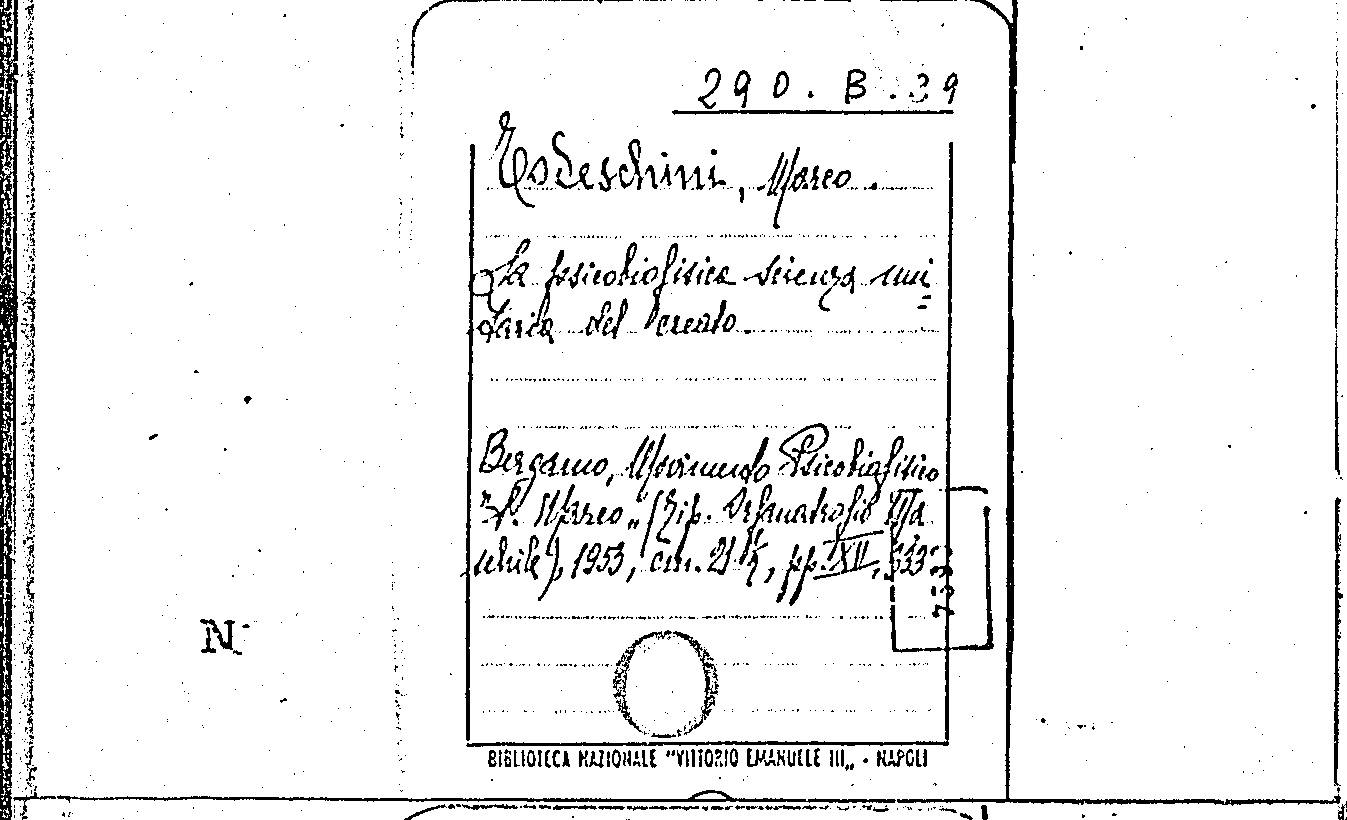 290.B.39
Todeschini, Marco.
La psicobiofisica scienza uni=
taria del creato.
Bergamo, Movimento Psicobiofisico
"S. Marco„ (Tip. Orfanotrofio Ma
schile), 1953, cm. 21½, pp. XVI, 333.
N
BIBLIOTECA NAZIONALE "VITTORIO EMANUELE III„ - NAPOLI